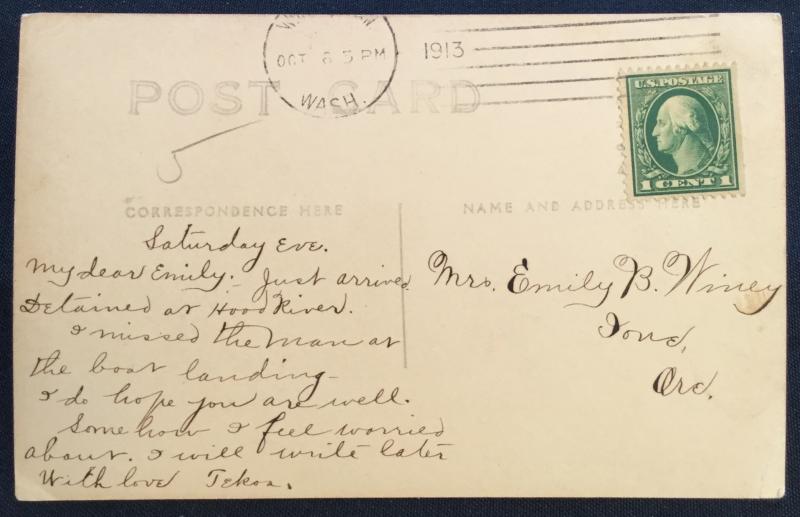 OCT 6 3 PM
1913
WASH.
U.S. POSTAGE
1 CENT 1
POST CARD
CORRESPONDENCE HERE
NAME AND ADDRESS HERE
Saturday Eve.
My dear Emily. Just arrived.
Detained at Hood River.
I missed the man at
the boat landing—
I do hope you are well.
Somehow I feel worried
about. I will write later
With love Tekoa.
Mrs. Emily B. Winey
Ione,
Ore.